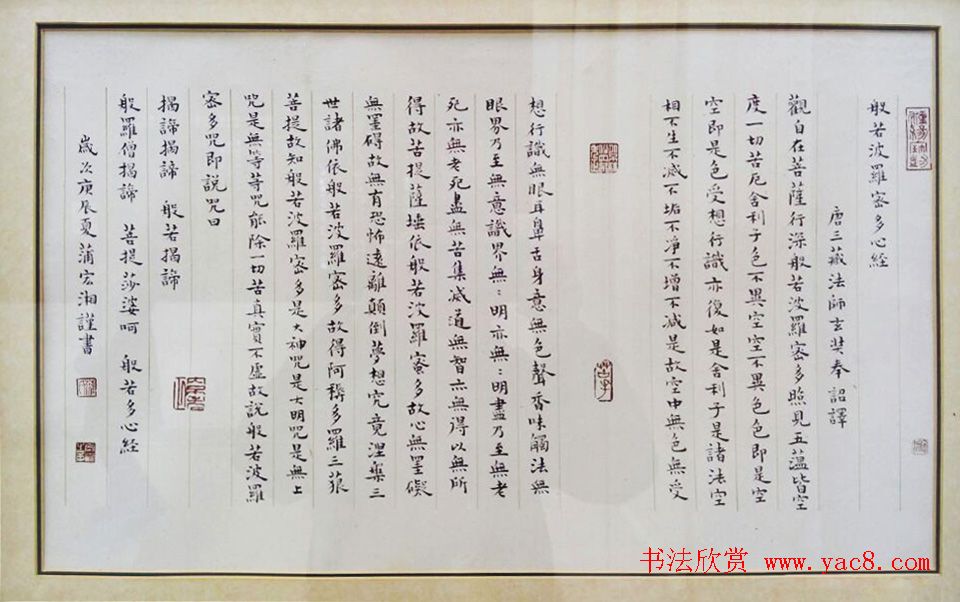 般若波羅密多心経
唐三藏法師玄奘奉詔譯
觀自在菩薩行深般若波羅密多照見五蘊皆空
度一切苦厄舍利子色不異空空不異色色即是空
空即是色受想行識亦復如是舍利子是諸法空
相不生不滅不垢不淨不增不減是故空中無色無受
想行識無眼耳鼻舌身意無色聲香味觸法無
眼界乃至無意識界無：明亦無：明盡乃至無老
死亦無老死盡無苦集滅道無智亦無得以無所
得故菩提薩埵依般若波羅密多故心無罣礙
無罣礙故無有恐怖遠離顛倒夢想究竟涅槃三
世諸佛依般若波羅密多故得阿耨多羅三藐
菩提故知般若波羅密多是大神咒是大明咒是無上
咒是無等等咒能除一切苦真實不虛故說般若波羅
密多咒即說咒曰
揭諦揭諦 般若揭諦
般羅僧揭諦 菩提莎婆呵 般若多心経
歲次庚辰夏蒲宏湘謹書
书法欣赏 www.yac8.com